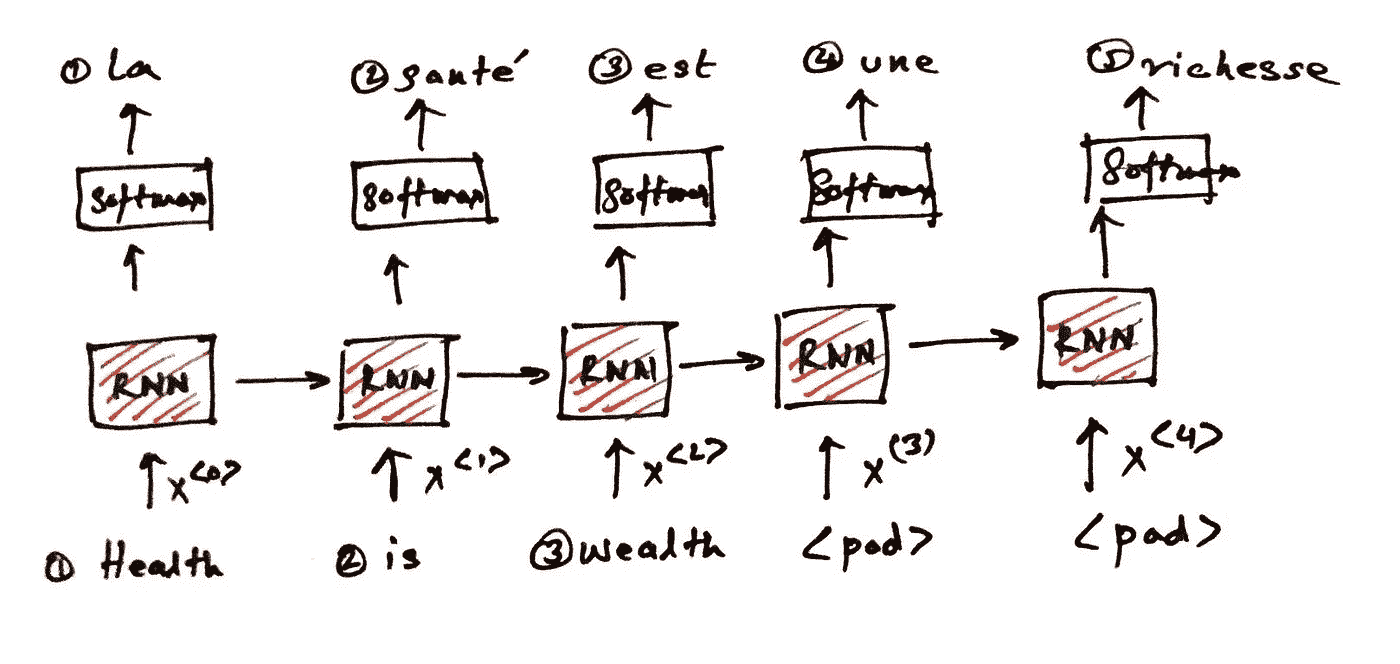 ① La ② santé ③ est ④ une ⑤ richesse
Softmax Softmax Softmax Softmax Softmax
RNN RNN RNN RNN RNN
x<0> x<1> x<2> x(3) x<4>
① Health ② is ③ wealth <pad> <pad>